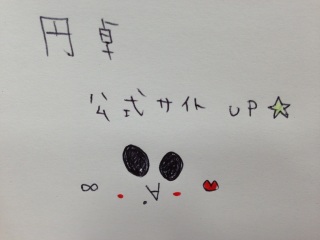 円卓
公式サイト UP☆
∞ A